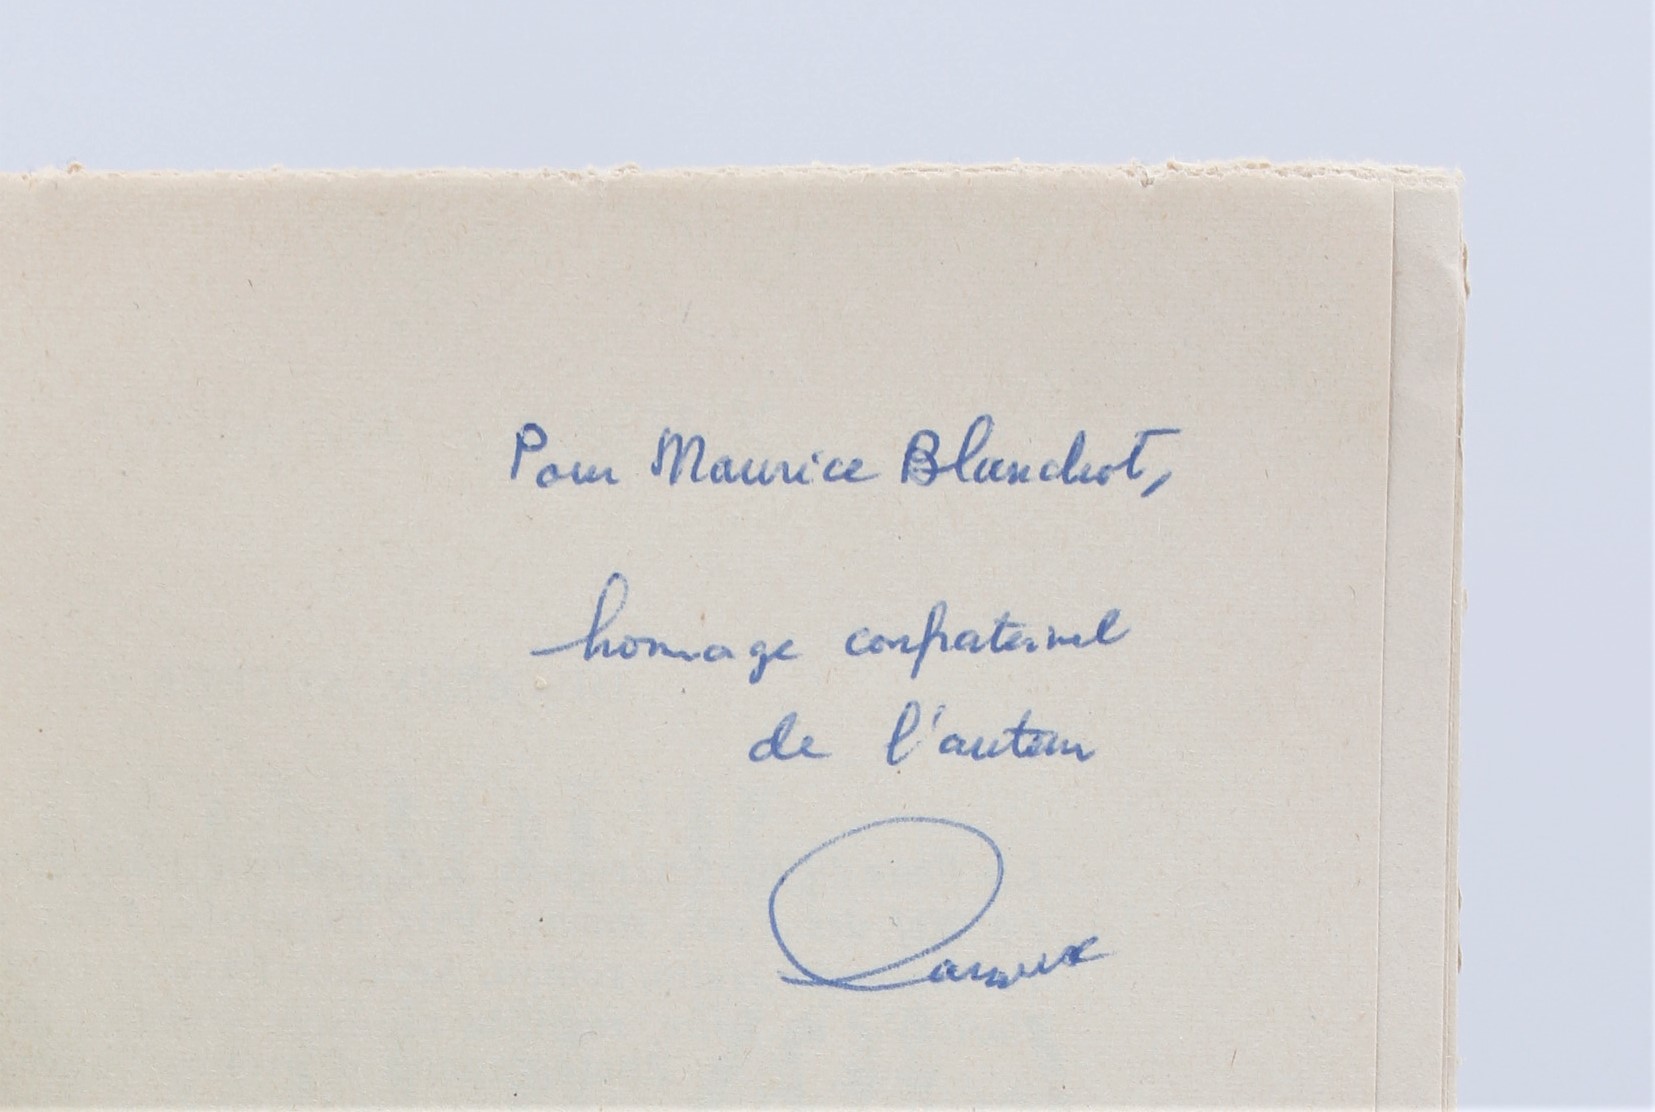 Pour Maurice Blanchot,
homage confraternel
de l'auteur